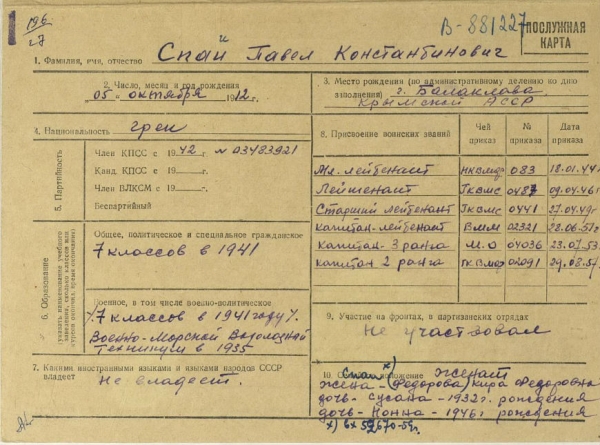 196
В-881227
ПОСЛУЖНАЯ КАРТА
1. Фамилия, имя, отчество Спай Павел Константинович
2. Число, месяц и год рождения
"05" октября 1912 г.
3. Место рождения (по административному делению ко дню
заполнения) г. Балаклава,
Крымской АССР
4. Национальность грек
5. Партийность
Член КПСС с 1942 г. № 03483921
Канд. КПСС с 19 г.
Член ВЛКСМ с 19 г.
Беспартийный
6. Образование
Общее, политическое и специальное гражданское
7 классов в 1941
Военное, в том числе военно-политическое
7 классов в 1941 году
Военно-Морской Водолазный
Техникум в 1935
7. Какими иностранными языками и языками народов СССР
владеет Не владеет.
8. Присвоение воинских званий Чей приказ № приказа Дата приказа
Мл. лейтенант НКВМФ 083 18.01.44
Лейтенант ТКВМС 0487 09.04.46г
Старший лейтенант ТКВМС 0441 27.04.49г
Капитан-лейтенант ВММ 02321 22.06.
Капитан-3 ранга М.О 04036 23.07.53
Капитан 2 ранга ГКВМФ 02091 29.08.57
9. Участие на фронтах, в партизанских отрядах
Не участвовал
10. положение женат
жена - Спай х) (Федорова) Кира Федоровна
дочь - Сусана - 1932 г. рождения
дочь - Нонна - 1946 г рождения
х) вх 592670-59г.